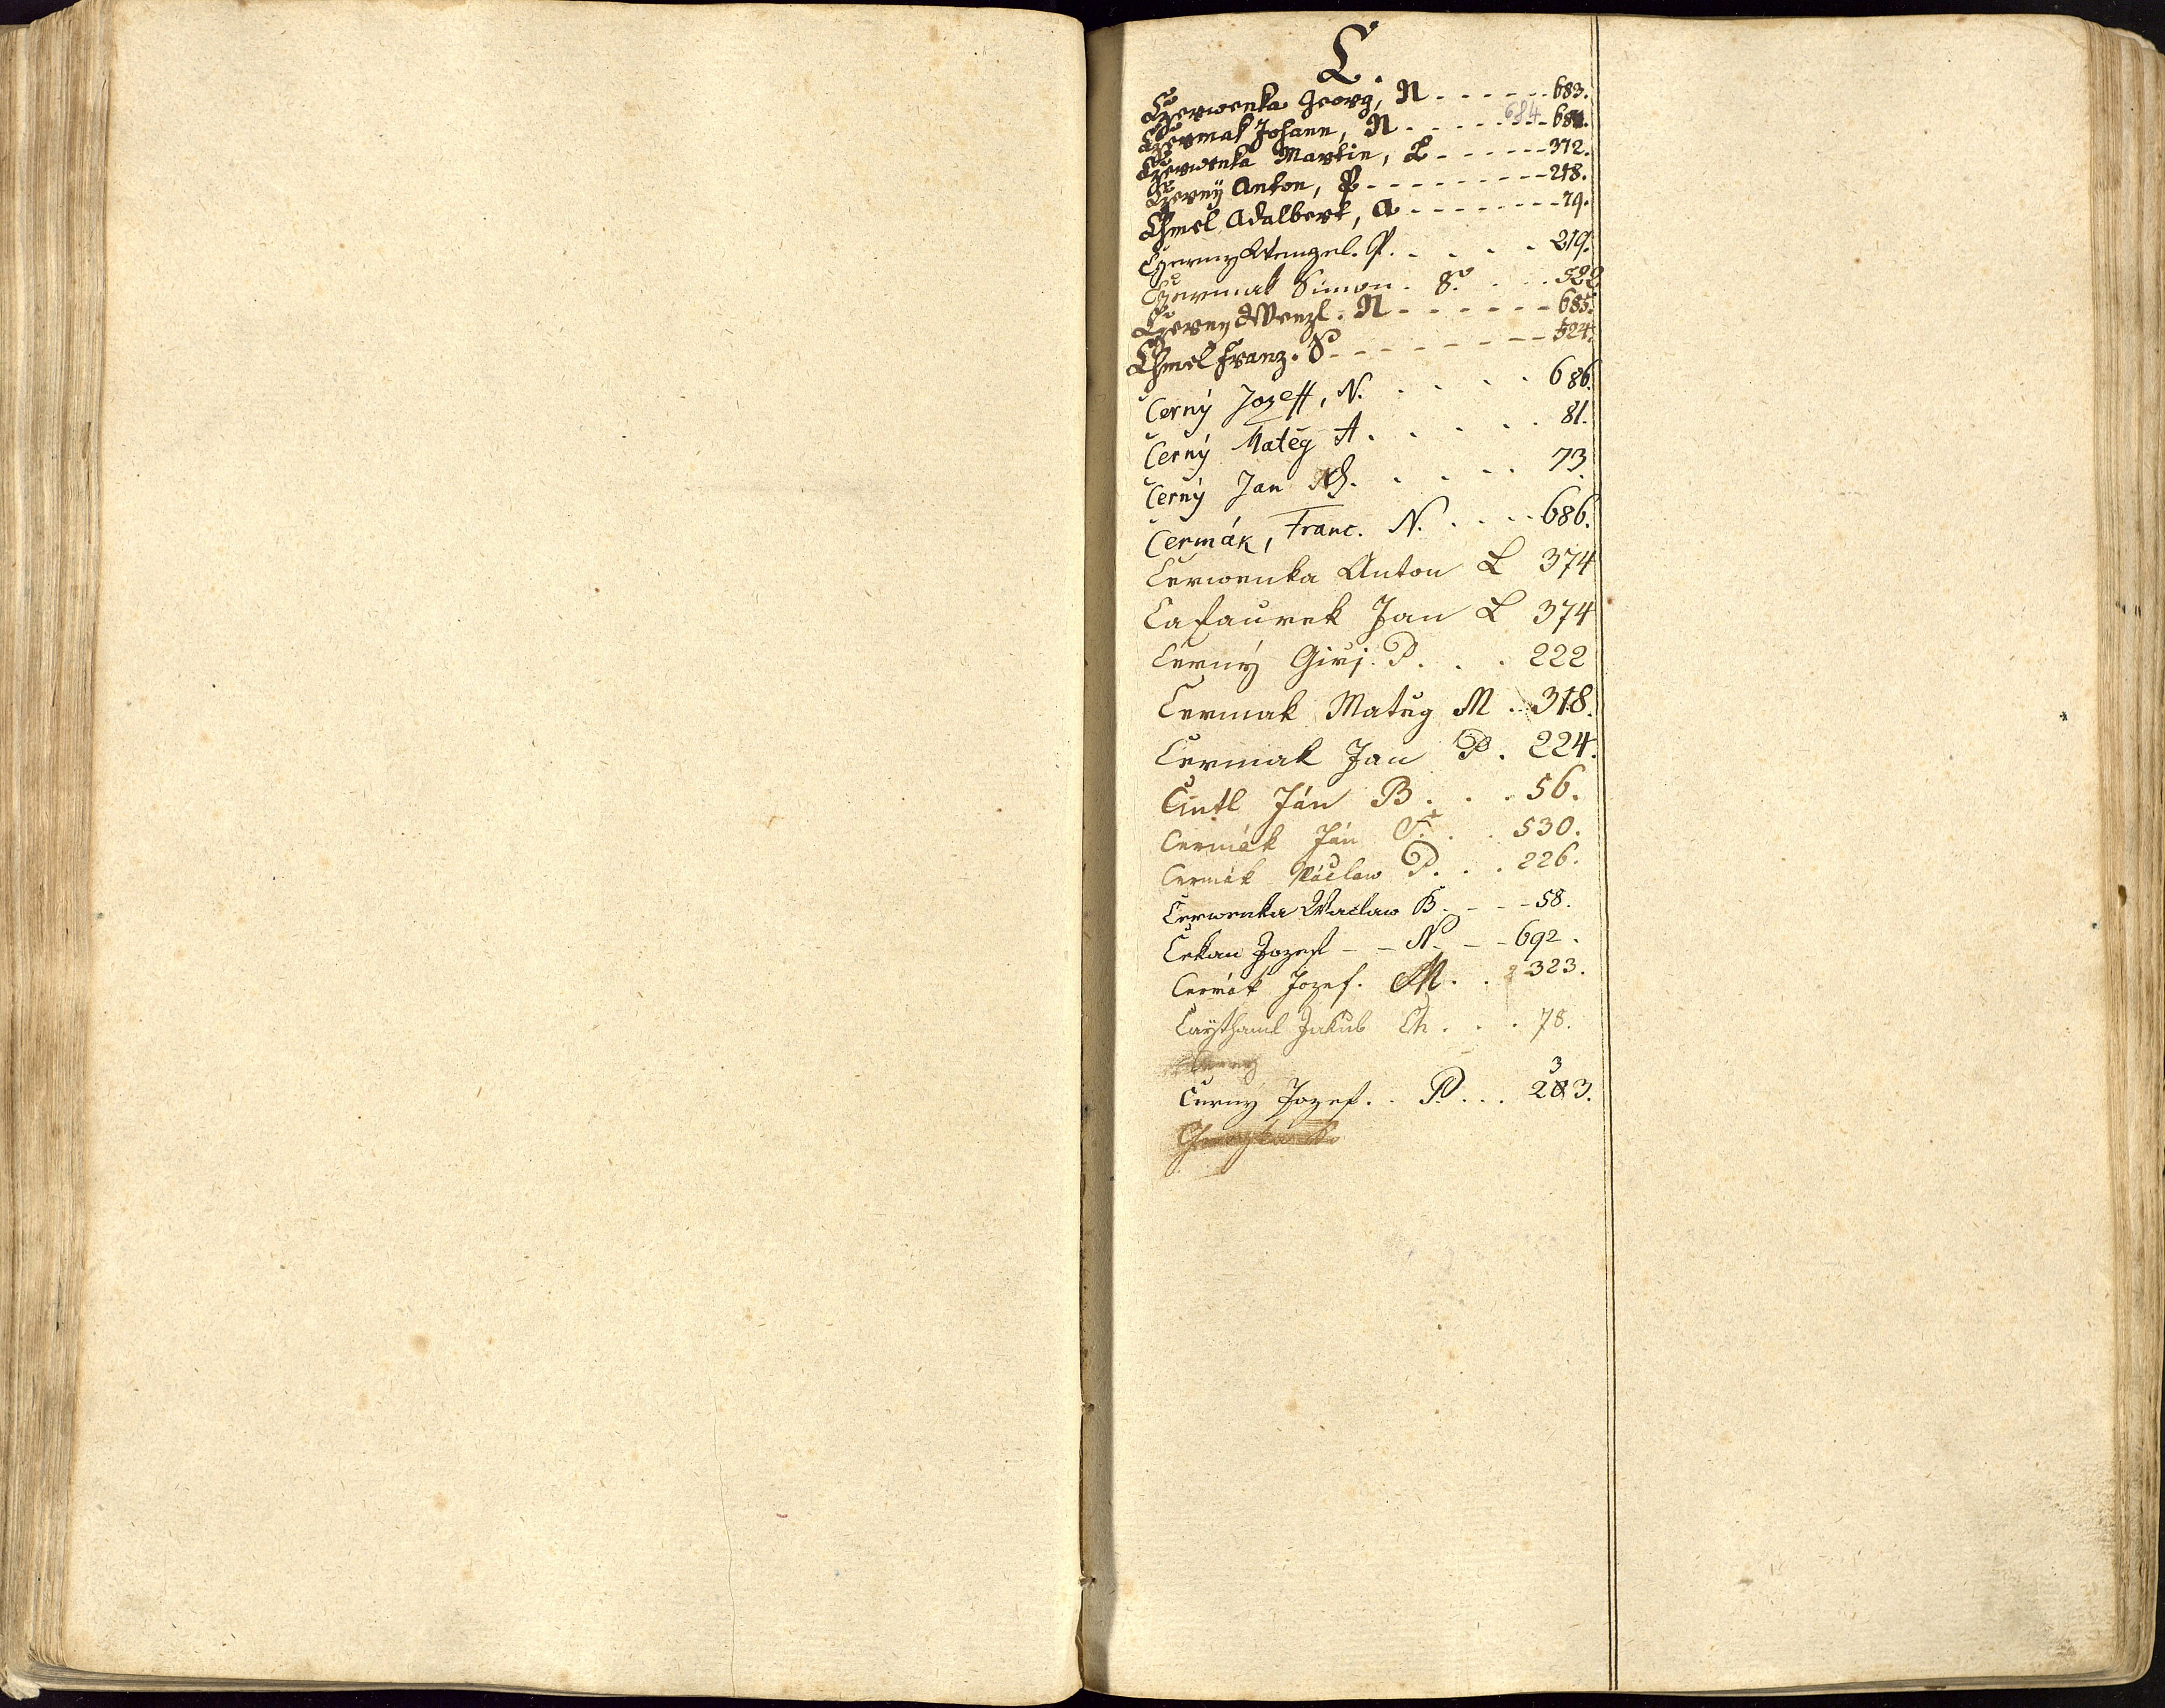 C.
Czerwenka Georg, N - - - - - - 683.
Czermak Johann, N. - - - - 684 - 684.
Czerwenka Martin, L - - - - - - 372.
Czerný Anton, P - - - - - - - - - 218.
Chmel Adalbert, A - - - - - - - - 79.
Czerny Wenzel. P. . . . . 219.
Czermak Simon. S. . . . 522
Czerny Wenzl. N - - - - - - 685.
Chmel Franz. S - - - - - - - - 524.
Černý Jozeff, N. . . . . 686.
Černý Matěg A . . . . . 81.
Černý Jan . . . . 73
Čermák, Franc. N. . . . . 686.
Čerwenka Anton L 374
Cafaurek Jan L 374
Černý Girj. P. . . 222
Čermak Matěg M . . 318.
Čermak Jan P. 224.
Cintl Ján B. . . 56.
Čermák Ján S. . . 530.
Čermák Václaw P. . . 226.
Čerwenka Waclaw B. - - - 58.
Čekan Jozef - - N. - - 692.
Čermák Jozef. M. . 323.
Caythaml Jakub Ch. . . 78.
Černý Jozef. . P. . . 233.